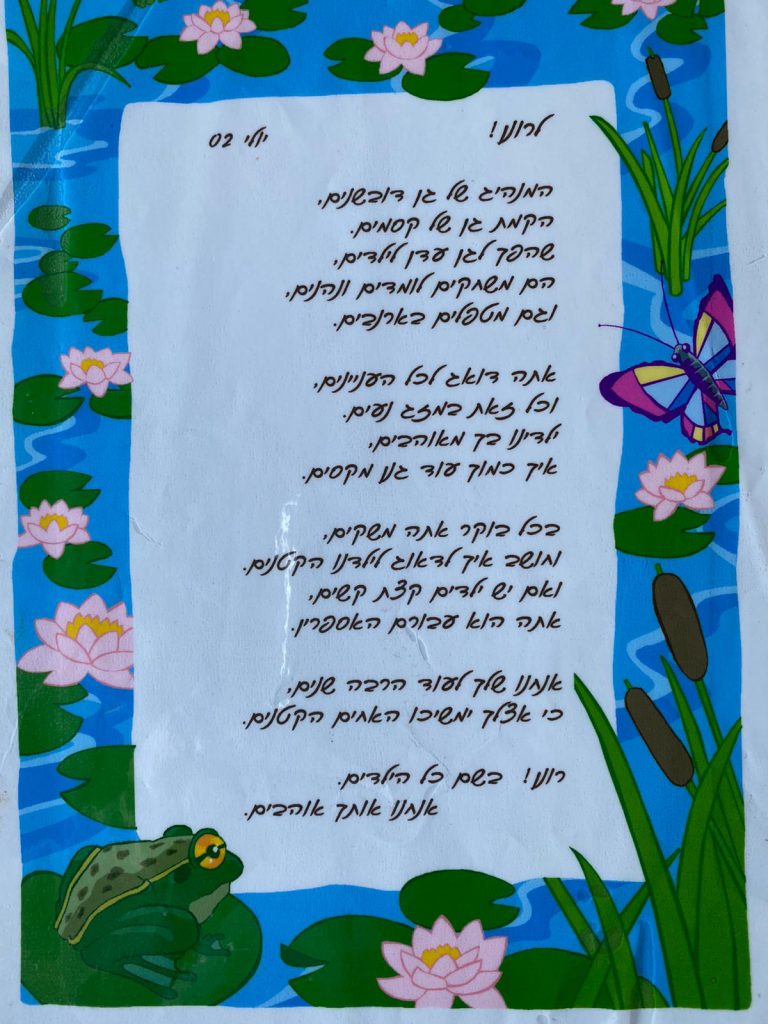 לרונו! יולי 02
המנהיג של גן דובשנים,
הקמת גן של קסמים.
שהפך לגן עדן לילדים,
הם משחקים לומדים ונהנים,
וגם מטפלים בארנבים.
אתה דואג לכל העניינים,
וכל זאת במזג נעים.
ילדינו בך מאוהבים,
איך כמוך עוד גנו מקסים.
בכל בוקר אתה משקים,
וחושב איך לדאוג לילדנו הקטנים.
ואם יש ילדים קצת קשים,
אתה הוא עבורם האספרין.
אנחנו שלך לעוד הרבה שנים,
כי אצלך ימשיכו האחים הקטנים.
רונו! בשם כל הילדים.
אנחנו אותך אוהבים.